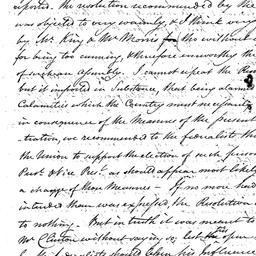 sported. the resolution recommended by the
was objected to very warmly, & I think very
by Mr. King & Mr. Morris for this without
for being too cunning, & therefore unworthy the
of such an Assembly. I cannot repeat the Reso
but it imported in Substance, that being alarmed
Calamities which the Country must necessarily
in consequence of the Measures of the present
-tration, we recommended to the federalists th
the Union to support the election of such person
Prest. & Vice Prest. as should appear most likely
a change of those Measures - If no more had
intended than was expressed, the Resolution
to nothing. - But in truth it was meant to
Mr Clinton without saying so, lest the
should
his Influence